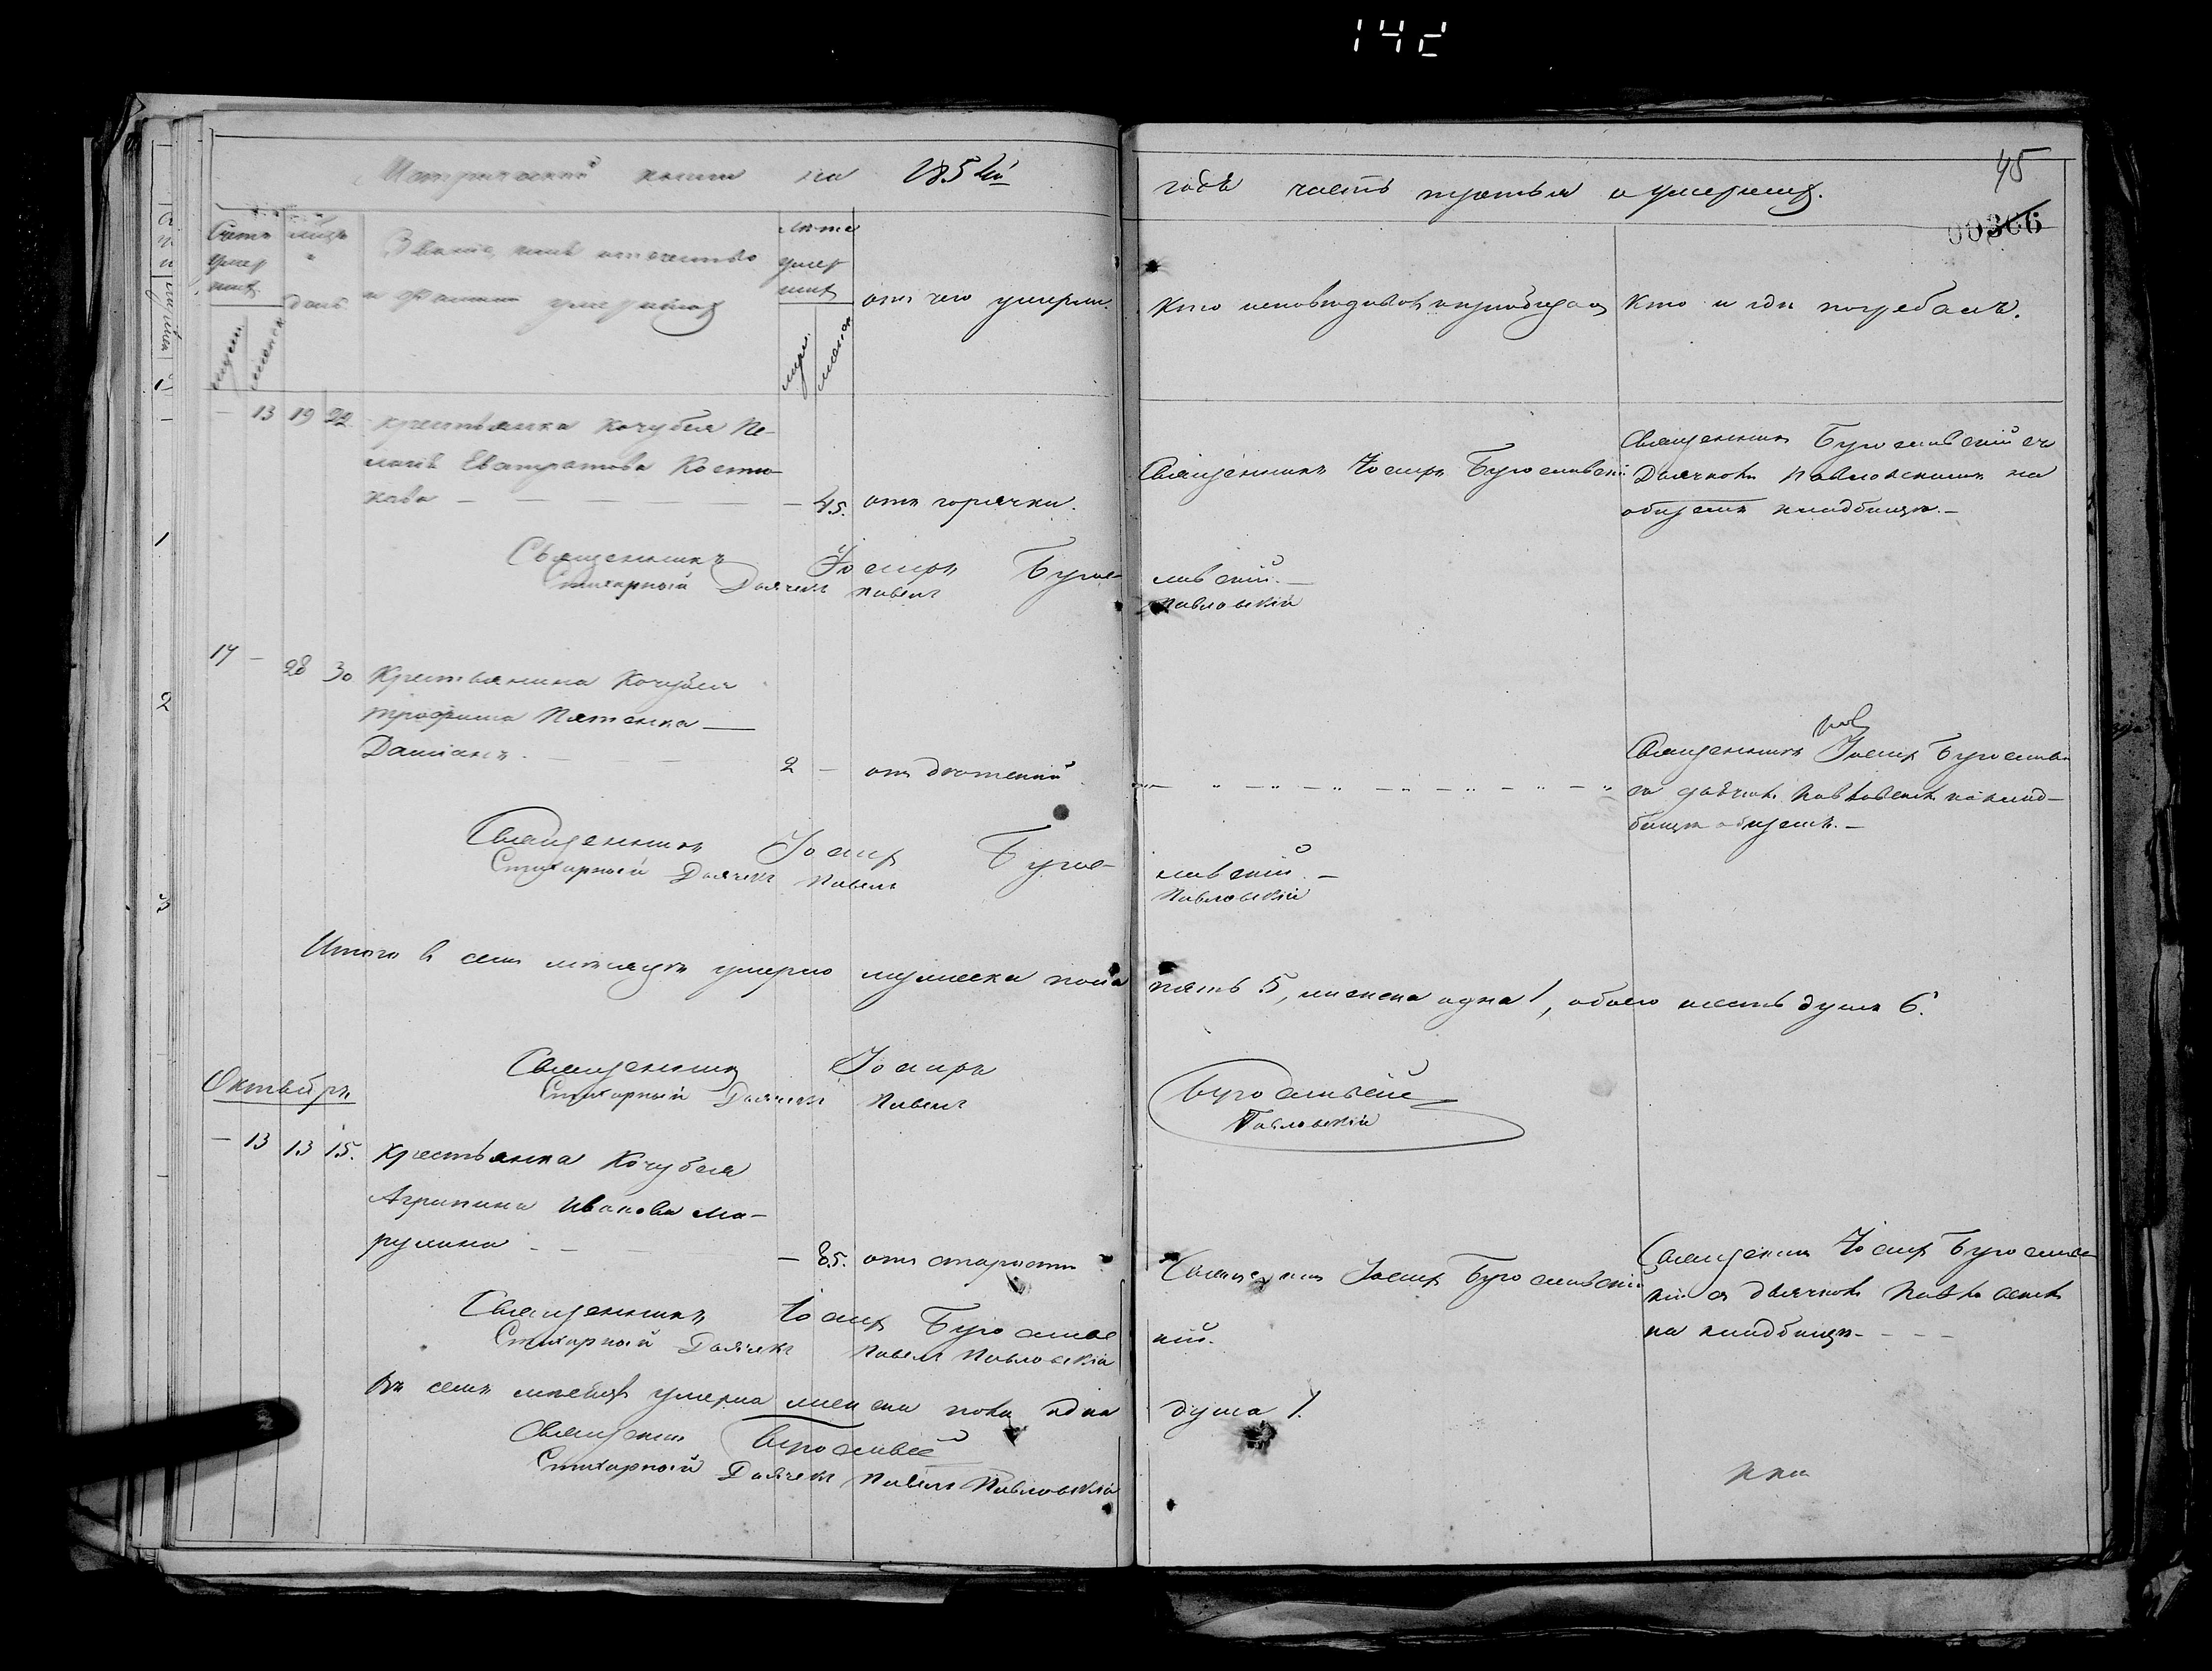 142
Метрической книги на 185
годъ часть третья о умершихъ.
45
00366
Счетъ умер шихъ
мѣсяцъ и день
Званіе, имя отечество и фамилія умершихъ
лѣта умер шихъ
отъ чего умерли.
Кто исповѣдывалъ и пріобщалъ
Кто и гдѣ погребалъ.
муж.
женск.
муж.
женск.
– 13 19 22
крестьянка Кочубея Пе-
лагія Евстратова Кости-
кова – – – – – 45. отъ горячки.
Священникъ Іосифъ Бугославскій
Священникъ Бугославскій съ
Дьячкомъ Павловскимъ на
общемъ кладбищѣ.–
Священникъ Іосифъ Бугос-
лавскій.–
Стихарный Дьячекъ Павелъ
Павловскій
14 – 28 30 Крестьянина Кочубея
Трофима
Даміанъ. – – – 2 – отъ
Священникъ Іосифъ Бугослав
съ дьячкомъ Павловскимъ на клад-
бищѣ общемъ.–
Священникъ Іосифъ Бугос-
лавскій.–
Стихарный Дьячекъ Павелъ
Павловскій
Итого въ семъ мѣсяцѣ умерло мужеска пола
пять 5, женска одна 1, обоего шесть душъ 6.
Священникъ Іосифъ
Бугославскій
Стихарный Дьячекъ Павелъ
Павловскій
Октябрь
– 13 13 15. Крестьянка Кочубея
Агрипина Иванова Ма-
– 85. отъ старости
Священникъ Іосифъ Бугославскій
Священникъ Іосифъ Бугославс
кій съ дьячкомъ Павловскимъ
на кладбищѣ – – –
Священникъ Іосифъ Бугославс
кій.
Стихарный Дьячекъ Павелъ Павловскій
Въ семъ мѣсяцѣ умерла женска пола одна
душа 1.
Священникъ Бугославскій
Стихарный Дьячекъ Павелъ Павловскій